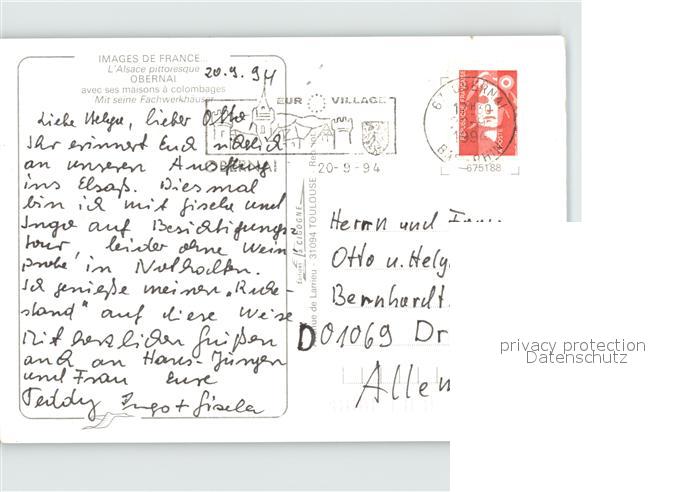 IMAGES DE FRANCE...
L'Alsace pittoresque
OBERNAI
avec ses maisons à colombages
Mit seine Fachwerkhäuser
20.9.94
Liebe Helga, lieber Otto
Ihr erinnert Euch sicherlich
an unseren Ausflug
ins Elsaß. Diesmal
bin ich mit Gisela und
Ingo auf Besichtigungs-
tour, leider ohne Wein
probe in Nothalten.
Ich genieße meinen „Ruhe-
stand" auf diese Weise
Mit herzlichen Grüßen
auch an Hans-Jürgen
und Frau Eure
Teddy Ingo + Gisela
EUR VILLAGE
OBERNAI
20-9-94
67 OBERNAI
BAS RHIN
675188
LA CIGOGNE
de Larrieu - 31094 TOULOUSE
Herrn und
Otto u.
Bernhardt
D 01069 Dr
Allem
privacy protection
Datenschutz